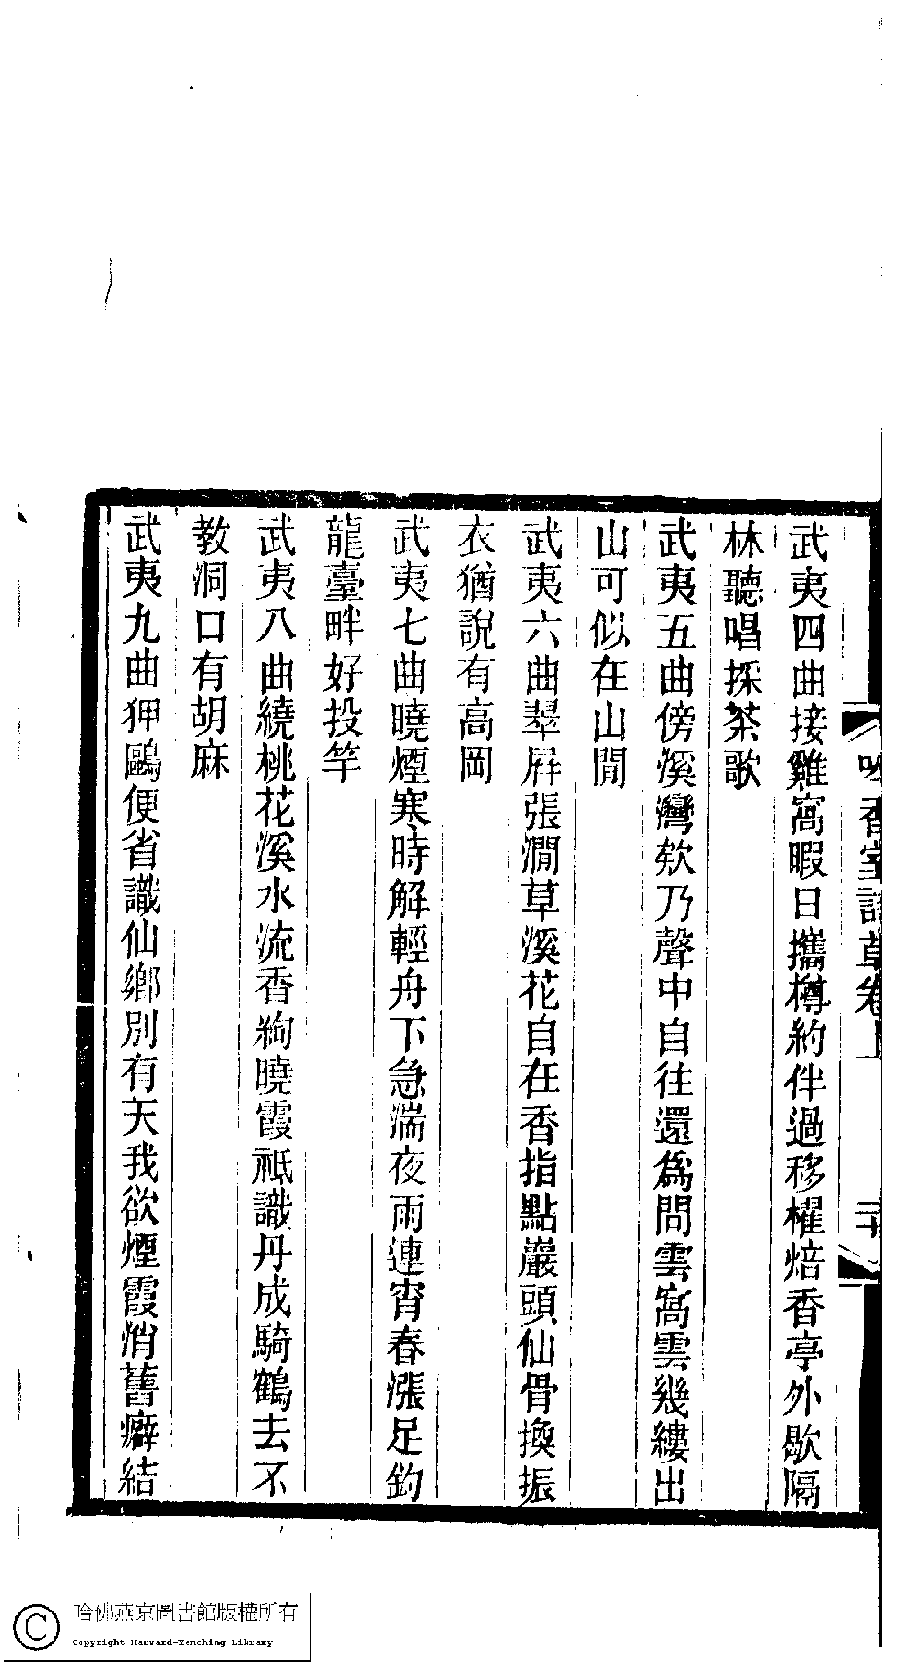 武夷四曲接雞窩暇日攜樽約伴過移櫂焙香亭外歇隔
林聽唱採茶歌
武夷五曲傍溪灣欸乃聲中自往還爲問雲窩雲幾縷出
山可似在山閒
武夷六曲翠屛張澗草溪花自在香指點巖頭仙骨換振
衣猶說有高岡
武夷七曲曉煙寒時解輕舟下急湍夜雨連宵春漲足釣
龍臺畔好投竿
武夷八曲繞桃花溪水流香絢曉霞祇識丹成騎鶴去不
教洞口有胡麻
武夷九曲狎鷗便省識仙鄉別有天我欲煙霞悄舊癖結
香室詩草卷上
哈佛燕京圖書館版權所有
Copyright Harvard-Yenching Library